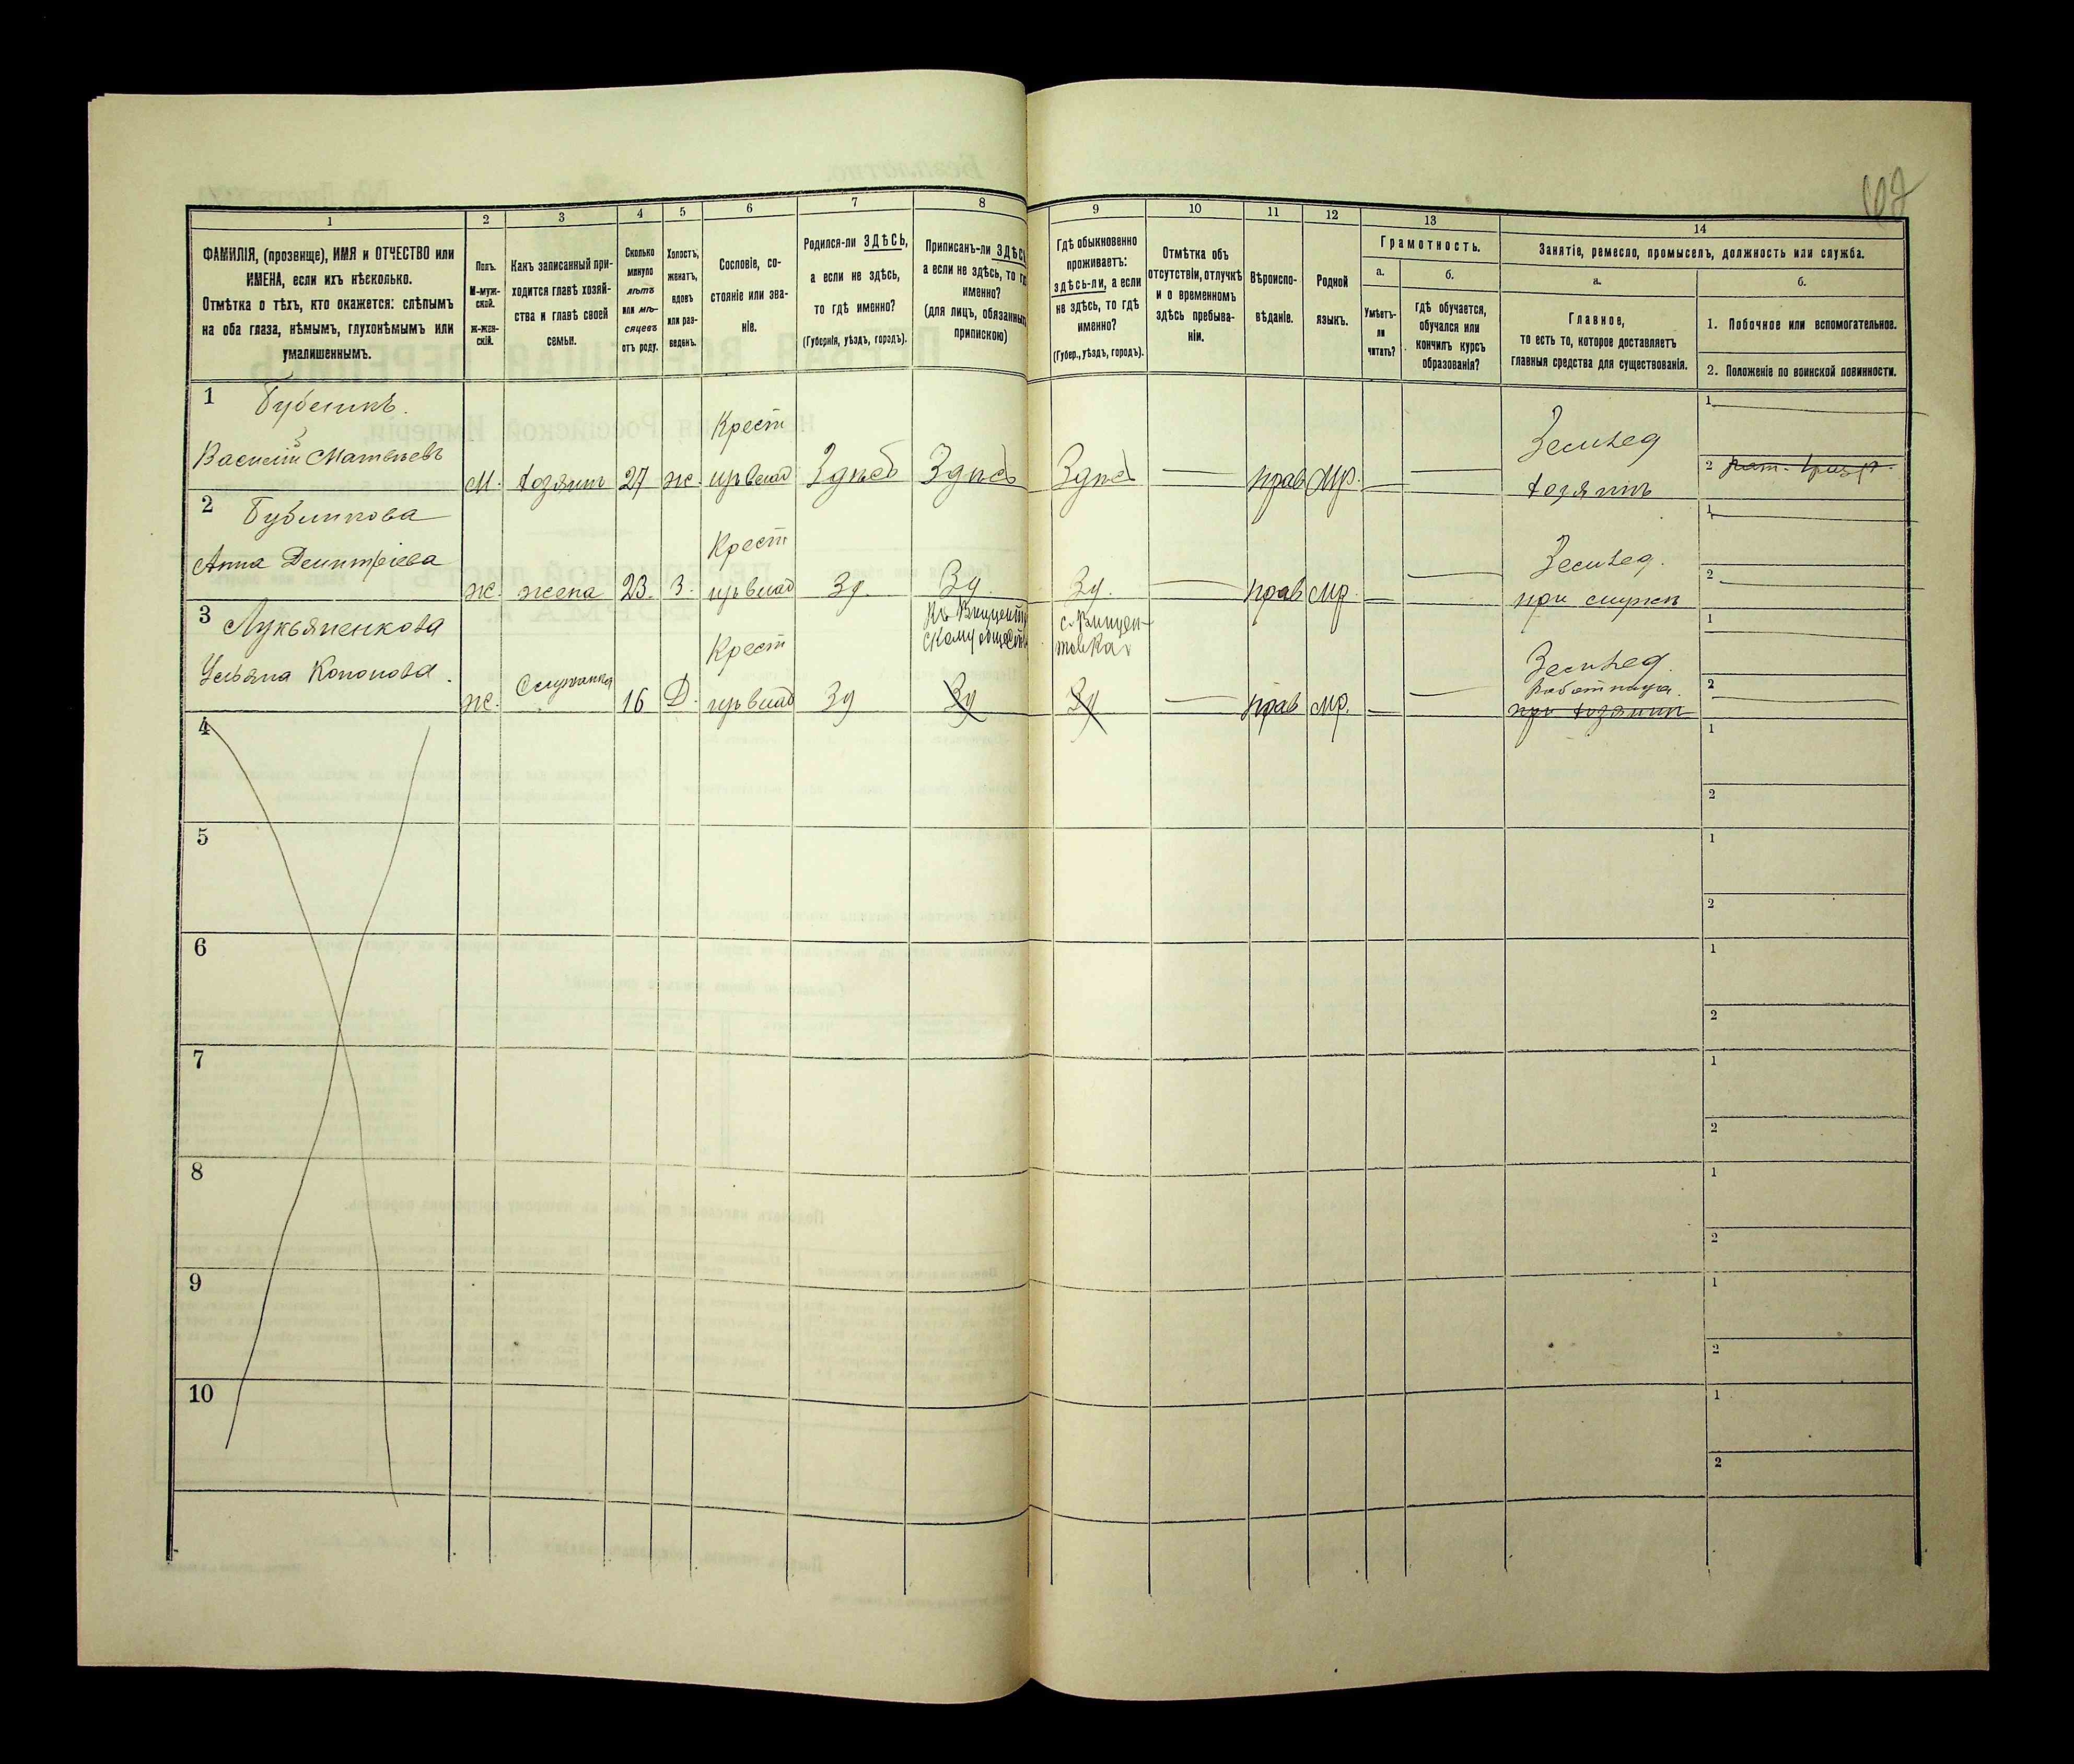 62
1
2
3
4
5
6
7
8
9
10
11
12
13
14
ФАМИЛІЯ, (прозвище), ИМЯ и ОТЧЕСТВО или
ИМЕНА, если ихъ нѣсколько.
Отмѣтка о тѣхъ, кто окажется: слѣпымъ
на оба глаза, нѣмымъ, глухонѣмымъ или
умалишеннымъ.
Полъ.
М-муж-
ской.
Ж-жен-
скій.
Какъ записанный при-
ходится главѣ хозяй-
ства и главѣ своей
семьи.
Сколько
минуло
лѣтъ
или мѣ-
сяцевъ
отъ роду.
Холостъ,
женатъ,
вдовъ
или раз-
веденъ.
Сословіе, со-
стояніе или зва-
ніе.
Родился-ли ЗДѢСЬ,
а если не здѣсь,
то гдѣ именно?
(Губернія, уѣздъ, городъ).
Приписанъ-ли ЗДѢСЬ
а если не здѣсь, то гдѣ
именно?
(для лицъ, обязанныхъ
припискою)
Гдѣ обыкновенно
проживаетъ:
здѣсь-ли, а если
не здѣсь, то гдѣ
именно?
(Губер., уѣздъ, городъ).
Отмѣтка объ
отсутствіи, отлучкѣ
и о временномъ
здѣсь пребыва-
ніи.
Вѣроиспо-
вѣданіе.
Родной
языкъ.
Грамотность.
а.
б.
Умѣетъ-
ли
читать?
гдѣ обучается,
обучался или
кончилъ курсъ
образованія?
Занятіе, ремесло, промыселъ, должность или служба.
а.
б.
Главное,
то есть то, которое доставляетъ
главныя средства для существованія.
1. Побочное или вспомогательное.
2. Положеніе по воинской повинности.
1
Бубликъ.
Василій Матвѣевъ
М. хозяинъ 27 ж.
Крест
Здѣсь Здѣсь Здѣсь — прав мр. — —
Землед
хозяинъ
1
2
2
Бубликова
Анна Дмитріева
ж. жена 23. З.
Крест
Зд. Зд. Зд. — прав мр. — —
Землед.
при мужѣ
1
2
3 Лукьяненкова
Ульяна Кононова.
ж. Служанка 16 Д.
Крест
Зд
Зд
Зд
— прав мр. — —
Землед.
Работница.
при хозяинѣ
1
2
4
1
2
5
1
2
6
1
2
7
1
2
8
1
2
9
1
2
10
1
2